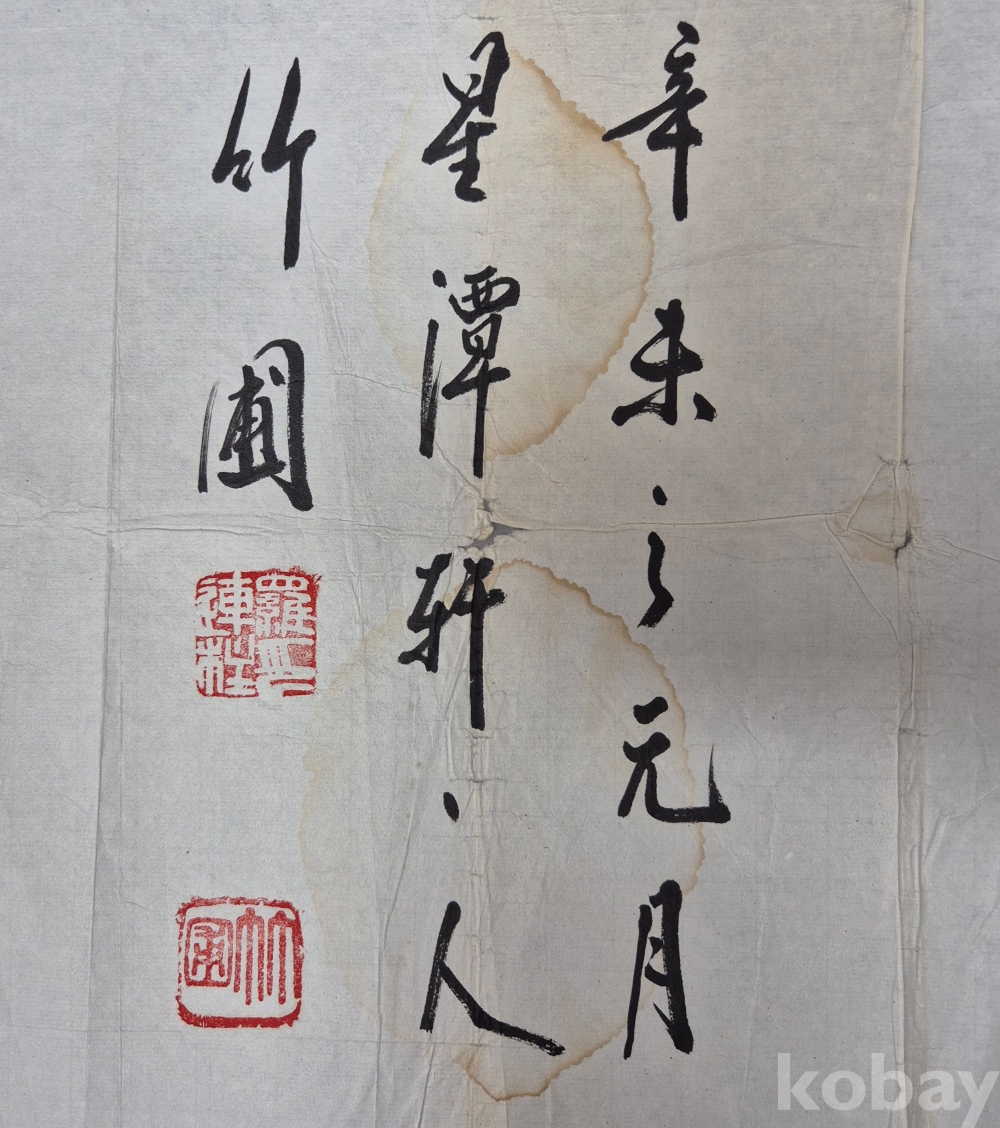 辛未之元月
星潭軒丶人
竹圃
竹圃
kobay